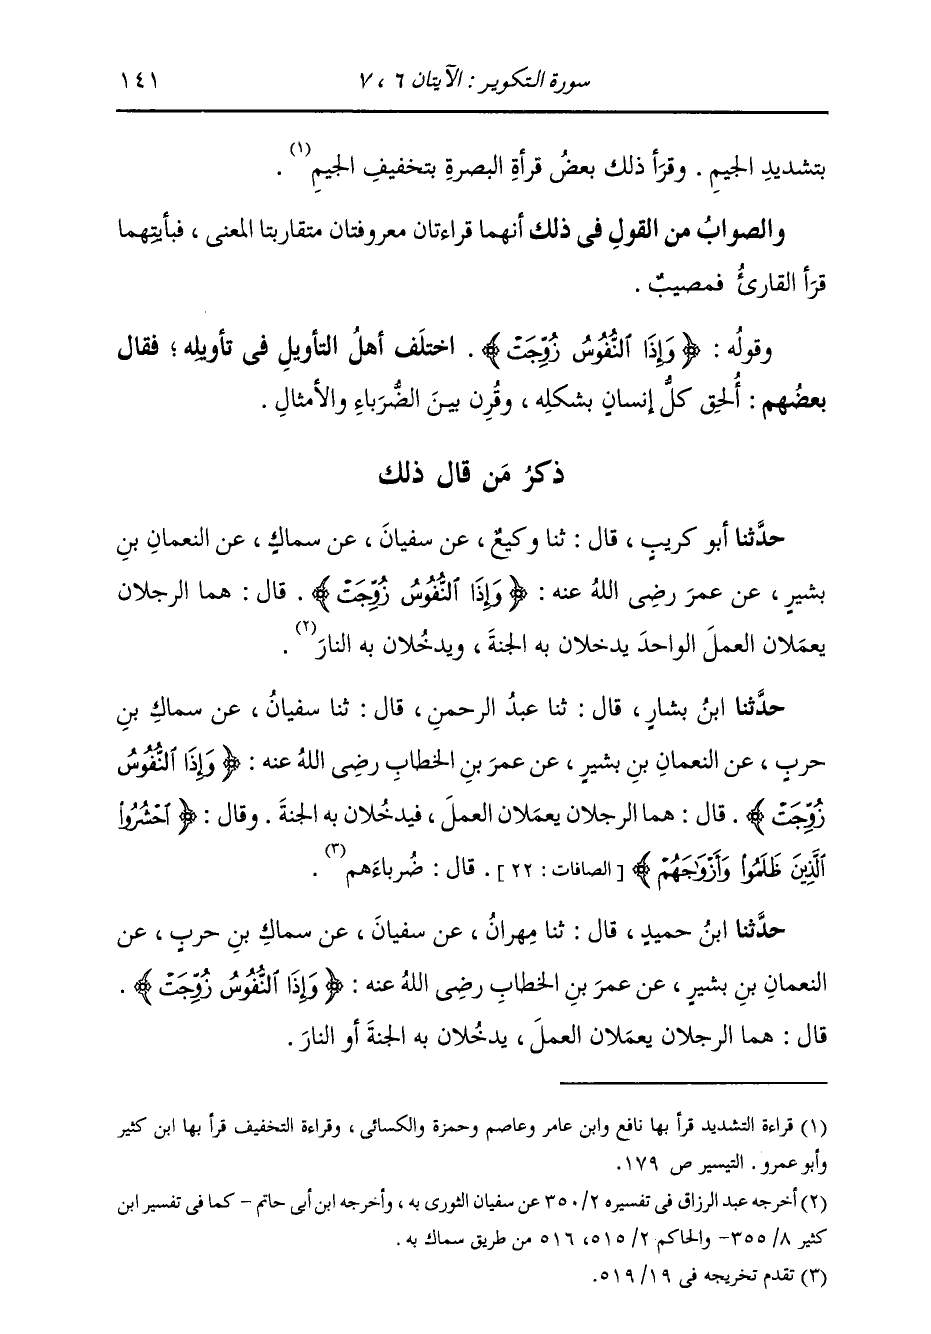 سورة التكوير : الآيتان ٦ ، ٧ ١٤١
بتشديدِ الجيمِ . وقرَأ ذلك بعضُ قرأةِ البصرةِ بتخفيفِ الجيمِ(١) .
والصوابُ من القولِ فى ذلك أنهما قراءتان معروفتان متقاربتا المعنى ، فبأيتِهما
قرَأ القارئُ فمصيبٌ .
وقولُه : ﴿ وَإِذَا ٱلنُّفُوسُ زُوِّجَتْ ﴾ . اختلَف أهلُ التأويلِ فى تأويلِه ؛ فقال
بعضُهم : أُلحِق كلُّ إنسانٍ بشكلِه ، وقُرِن بينَ الضُّرَباءِ والأمثالِ .
ذكرُ مَن قال ذلك
حدَّثنا أبو كريبٍ ، قال : ثنا وكيعٌ ، عن سفيانَ ، عن سماكٍ ، عن النعمانِ بنِ
بشيرٍ ، عن عمرَ رضِى اللهُ عنه : ﴿ وَإِذَا ٱلنُّفُوسُ زُوِّجَتْ ﴾ . قال : هما الرجلان
يعمَلان العملَ الواحدَ يدخلان به الجنةَ ، ويدخُلان به النارَ(٢) .
حدَّثنا ابنُ بشارٍ ، قال : ثنا عبدُ الرحمنِ ، قال : ثنا سفيانُ ، عن سماكِ بنِ
حربٍ ، عن النعمانِ بنِ بشيرٍ ، عن عمرَ بنِ الخطابِ رضِى اللهُ عنه : ﴿ وَإِذَا ٱلنُّفُوسُ
زُوِّجَتْ ﴾ . قال : هما الرجلان يعمَلان العملَ ، فيدخُلان به الجنةَ . وقال : ﴿ ٱحْشُرُوا۟
ٱلَّذِينَ ظَلَمُوا۟ وَأَزْوَٰجَهُمْ ﴾ [ الصافات : ٢٢ ] . قال : ضُرباءَهم(٣) .
حدَّثنا ابنُ حميدٍ ، قال : ثنا مِهرانُ ، عن سفيانَ ، عن سماكِ بنِ حربٍ ، عن
النعمانِ بنِ بشيرٍ ، عن عمرَ بنِ الخطابِ رضِى اللهُ عنه : ﴿ وَإِذَا ٱلنُّفُوسُ زُوِّجَتْ ﴾ .
قال : هما الرجلان يعمَلان العملَ ، يدخُلان به الجنةَ أو النارَ .
(١) قراءة التشديد قرأ بها نافع وابن عامر وعاصم وحمزة والكسائى ، وقراءة التخفيف قرأ بها ابن كثير
وأبو عمرو . التيسير ص ١٧٩.
(٢) أخرجه عبد الرزاق فى تفسيره ٣٥٠/٢ عن سفيان الثورى به ، وأخرجه ابن أبى حاتم – كما فى تفسير ابن
كثير ٨/ ٣٥٥– والحاكم ٢/ ٥١٥، ٥١٦ من طريق سماك به .
(٣) تقدم تخريجه فى ١٩/ ٥١٩.